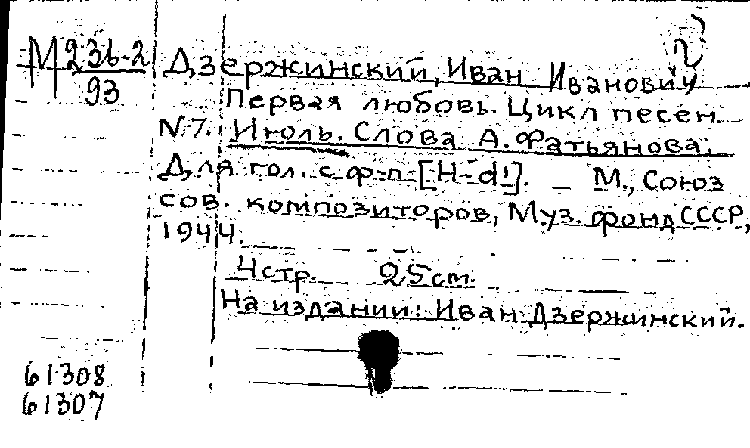 М236-2
93
Дзержинский, Иван Иванович
Первая любовь. Цикл песен.
N7. Июль. Слова А. Фатьянова.
Для гол. с ф-п [H-d¹]. _ М., Союз
сов. композиторов, Муз. фонд СССР,
1944.
4стр. 25cm.
На издании: Иван Дзержинский.
61308
61307